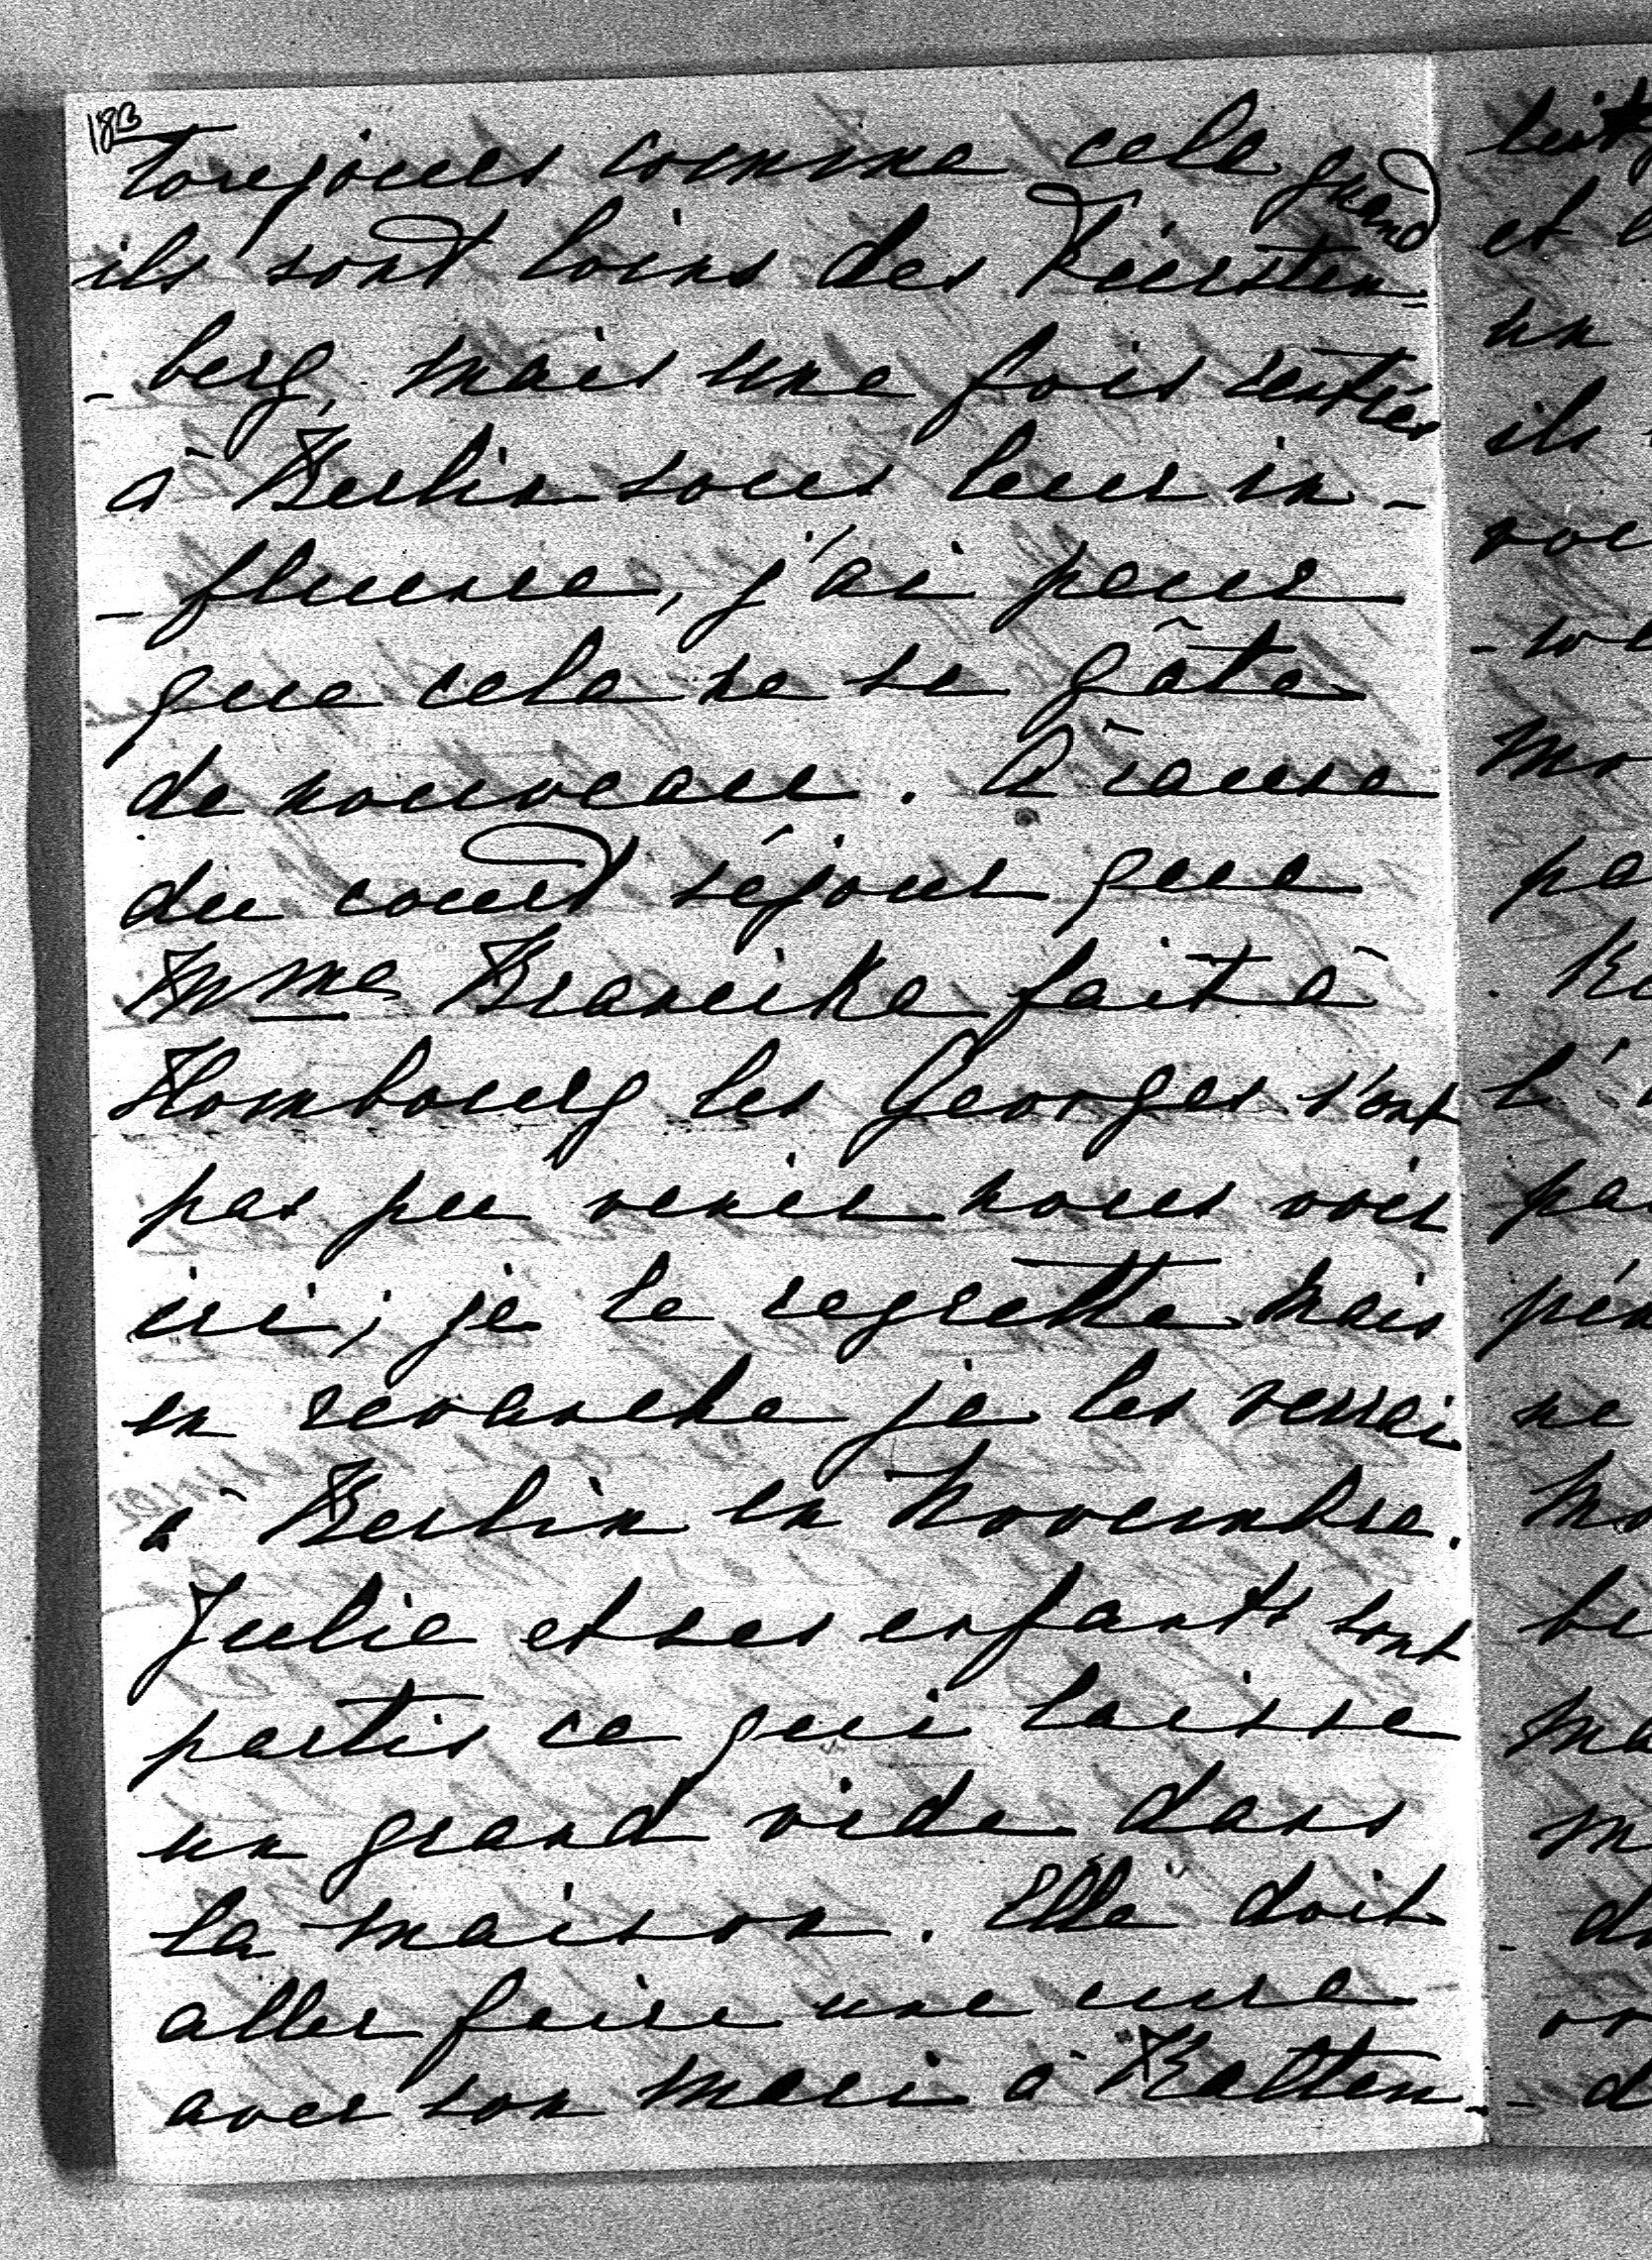 183
toujours comme cela quand
ils sont loins des Fürsten-
-berg, mais une fois rentrés
à Berlin sous leur in-
-fluence, j'ai peur
que cela ne se gâte
de nouveau. À cause
du court séjour que
Mme Branicka fait à
Hombourg les Georges n'ont
pas pu venir nous voir
ici; je le regrette mais
en revanche je les verrai
à Berlin en Novembre.
Julie et ses enfants sont
partis ce qui laisse
un grand vide dans
la maison. Elle doit
aller faire une cure
avec son mari à Kalten-
et
un
ils